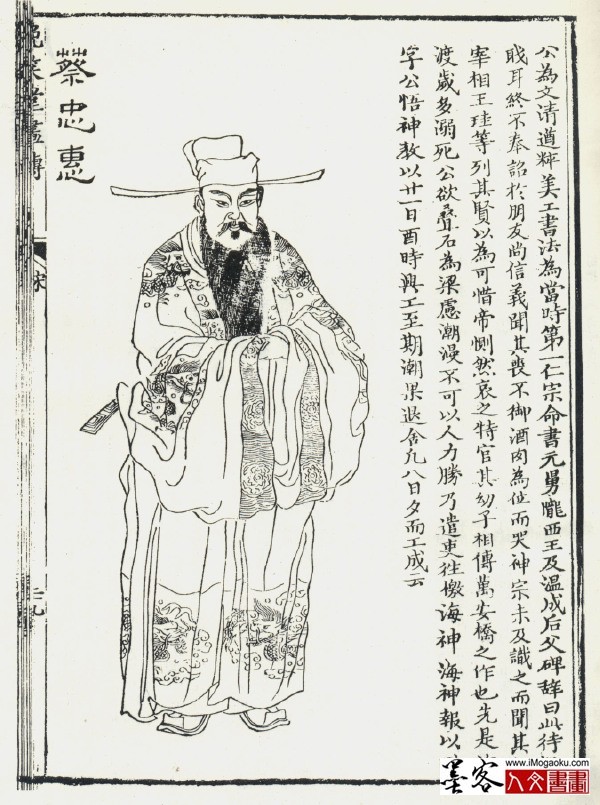 公為文清遒粹美工書法為當時第一仁宗命書元舅隴西王及溫成后父碑辭曰此待
職耳終不奉詔於朋友尚信義聞其喪不御酒肉為位而哭神宗未及識之而聞其
宰相王珪等列其賢以為可惜帝惻然哀之特官其幼子相傳萬安橋之作也先是
渡歲多溺死公欲叠石為梁慮潮漫不可以人力勝乃遣吏往檄海神海神報以
字公悟神教以廿一日酉時興工至期潮果退舍凡八日夕而工成云
蔡忠惠
晚笑堂畫傳
宋
墨客
www.iMogaoku.com
人文書畫